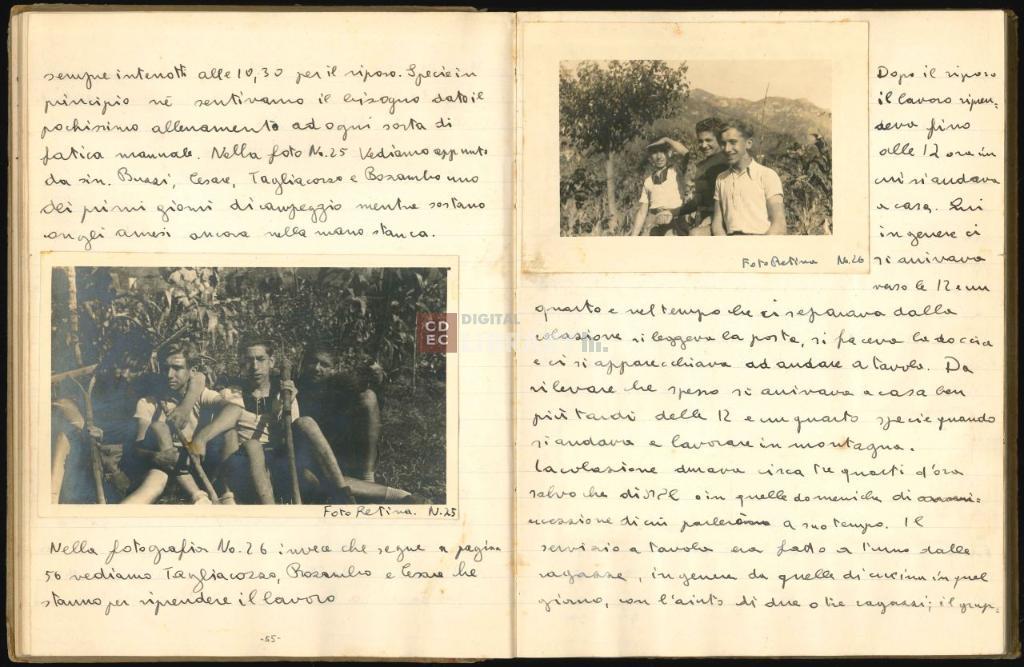 sempre interrotti alle 10,30 per il riposo. Specie in
principio né sentivamo il bisogno dato il
pochissimo allenamento ad ogni sorta di
fatica manuale. Nella foto No. 25 Vediamo appunto
da sin. Bussi, Cesare, Tagliacozzo e Bozambo uno
dei primi giorni di campeggio mentre sostano
cogli arnesi ancora nella mano stanca.
Foto Retina. N. 25
Nella fotografia No. 26 invece che segue a pagina
56 vediamo Tagliacozzo, Bozambo e Cesare che
stanno per riprendere il lavoro
-55-
Foto Retina No. 26
Dopo il riposo
il lavoro ripren-
deva fino
alle 12 ora in
cui si andava
a casa. Qui
in genere ci
si arrivava
verso le 12 e un
quarto e nel tempo che ci separava dalla
colazione si leggeva la posta, si faceva la doccia
e ci si apparecchiava ad andare a tavola. Da
rilevare che spesso si arrivava a casa ben
più tardi delle 12 e un quarto specie quando
si andava a lavorare in montagna.
La colazione durava circa tre quarti d'ora
salvo che di o in quelle domeniche di
eccezione di cui parleremo a suo tempo. Il
servizio a tavola era fatto a turno dalle
ragazze, in genere da quelle di cucina in quel
giorno, con l'aiuto di due o tre ragazzi; il grup-
CD
EC
DIGITAL
LIBRARY